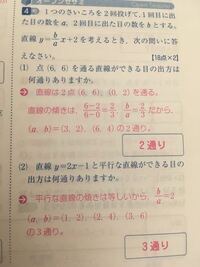 4 1つのさいころを2回投げて,1回目に出
た目の数をa,2回目に出た目の数をbとする。
直線 y=b/a x+2を考えるとき,次の問いに答
えなさい。 【18点×2】
(1) 点(6, 6)を通る直線ができる目の出方は
何通りありますか。
➔ 直線は2点(6, 6), (0, 2)を通る。
直線の傾きは, 6-2/6-0=2/3 b/a=2/3だから,
(a, b)=(3, 2), (6, 4)の2通り。
2通り
(2) 直線 y=2x-1と平行な直線ができる目の
出方は何通りありますか。
➔ 平行な直線の傾きは等しいから, b/a=2
(a, b)=(1, 2), (2, 4), (3, 6)
の3通り。
3通り